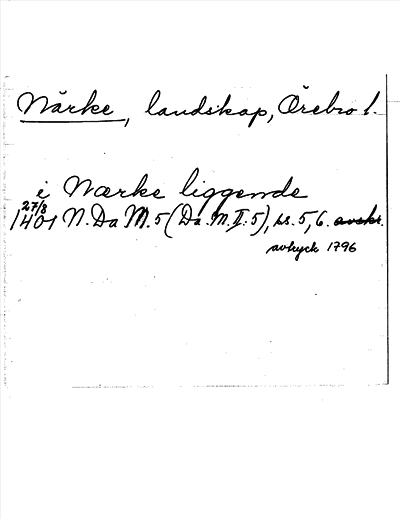 Närke, landskap, Örebro l.
i Nærke liggende
27/8
1401 N. Da M. 5 (Da. M. II: 5), ss. 5, 6. avskr.
avtryck 1796